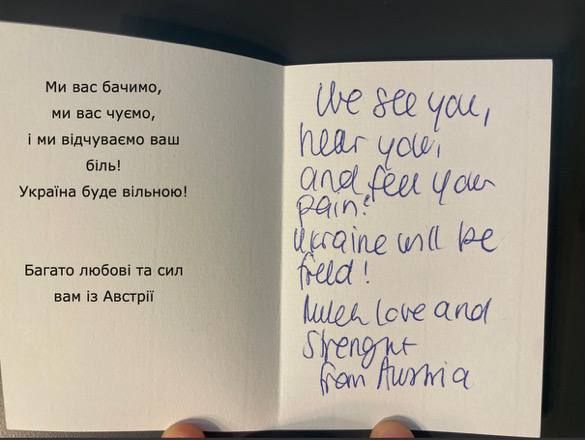 Ми вас бачимо,
ми вас чуємо,
і ми відчуваємо ваш
біль!
Україна буде вільною!
Багато любові та сил
вам із Австрії
We see you,
hear you,
and feel your
pain!
Ukraine will be
freed!
Much love and
Strenght
from Austria